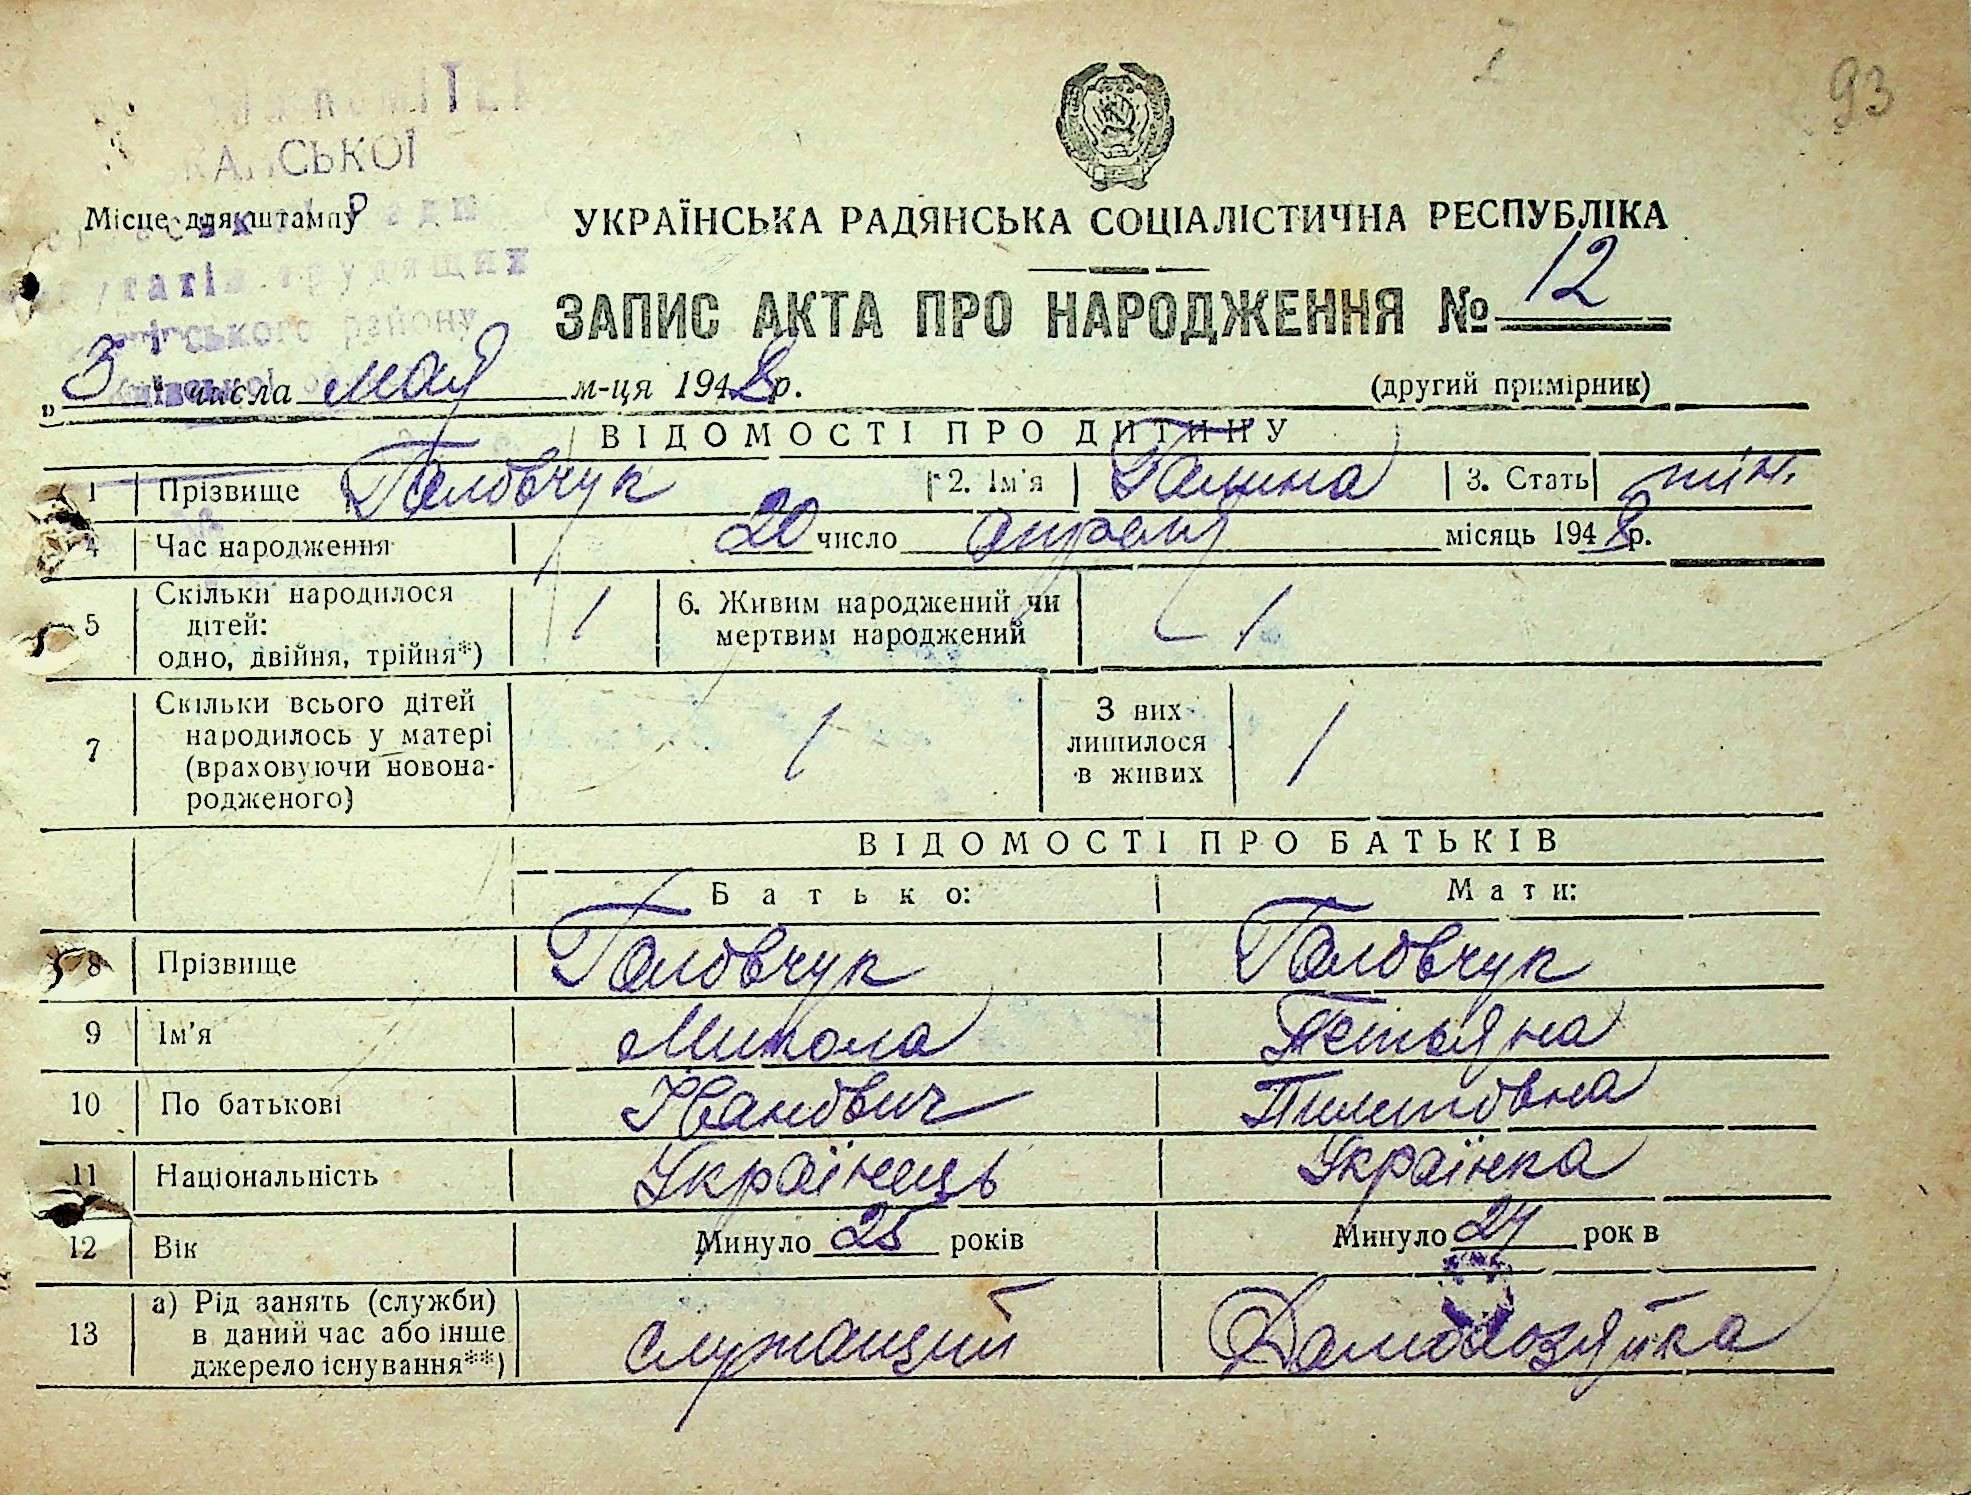 93
КАНСЬКОЇ
Місце для штампу
УКРАЇНСЬКА РАДЯНСЬКА СОЦІАЛІСТИЧНА РЕСПУБЛІКА
трудящих
району
ЗАПИС АКТА ПРО НАРОДЖЕННЯ № 12
„ 3 " числа мая м-ця 1948 р. (другий примірник)
ВІДОМОСТІ ПРО ДИТИНУ
1 Прізвище Головчук 2. Ім'я Галина 3. Стать жін.
4 Час народження 20 число апреля місяць 1948 р.
5 Скільки народилося дітей: одно, двійня, трійня*) 1 6. Живим народжений чи мертвим народжений 1
7 Скільки всього дітей народилось у матері (враховуючи новонародженого) 1 З них лишилося в живих 1
ВІДОМОСТІ ПРО БАТЬКІВ
Батько: Мати:
8 Прізвище Головчук Головчук
9 Ім'я Микола Тетьяна
10 По батькові Іванович Пилиповна
11 Національність Українець Українка
12 Вік Минуло 25 років Минуло 24 рок в
13 а) Рід занять (служби) в даний час або інше джерело існування**) служащий Домохозяйка